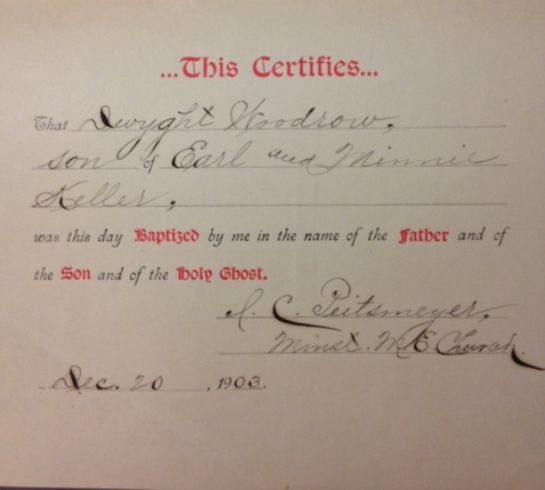 ...This Certifies...
That Dwyght Woodrow,
son of Earl and Minnie
Keller,
was this day Baptized by me in the name of the Father and of
the Son and of the Holy Ghost.
C. Peitsmeyer,
Minst. M.E. Church.
Dec. 20, 1903.